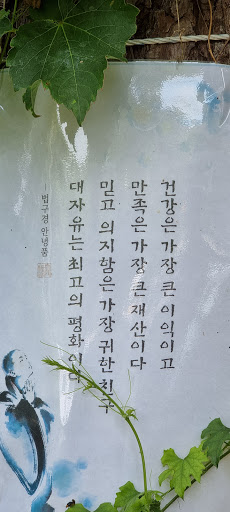 건강은 가장 큰 이익이고
만족은 가장 큰 재산이다
믿고 의지함은 가장 귀한 친구
대자유는 최고의 평화이다
법구경 안녕품